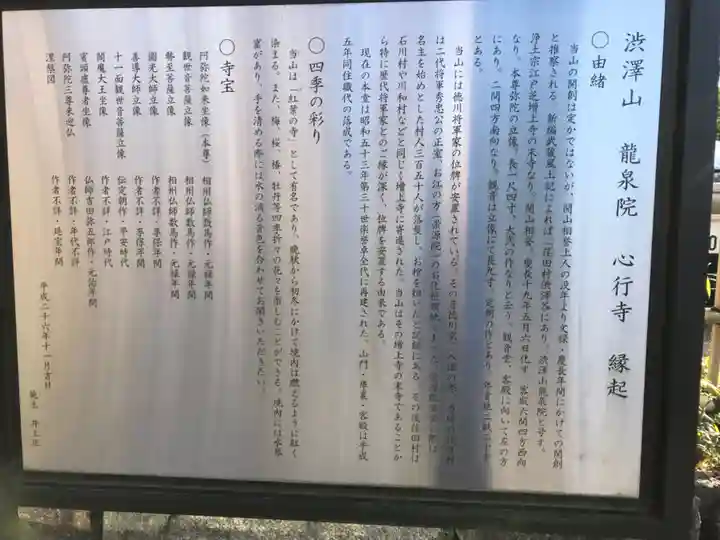 渋澤山　龍泉院　心行寺　縁起
〇由緒
当山の開創は定かではないが、開山相誉上人の没年より文禄・慶長年間にかけての開創
と推察される。新編武蔵風土記によれば「荏田村渋澤谷にあり、渋澤山龍泉院と号す。
浄土宗江戸芝増上寺の末寺なり、開山相誉、慶長十九年五月六日化す　客殿六間四方西向
なり、本尊弥陀の立像、長一尺四寸、大
の作なりと云う。観音堂、客殿に向いて左の方
にあり。二間四方南向なり。観音は立像にて長九寸、定朝の作とあり
とある。
当山には徳川将軍家の位牌が安置されている。その昔徳川家
は二代将軍秀忠公の正室、お江の方（崇源院）の
名主を始めとした村人三百五十人が落髪し、お棺を担いだと記録にある。その後荏田村は
石川村や川和村などと同じく増上寺に寄進された。当山はその増上寺の末寺であることか
ら特に歴代将軍家とのご縁が深く、位牌を安置する由来である。
現在の本堂は昭和五十三年第三十世
卓全代に再建された。山門・庫裏・客殿は平成
五年同住職代の落成である。
〇四季の彩り
当山は「紅葉の寺」として有名であり、晩秋から初冬にかけて境内は燃えるように紅く
染まる。また、梅、桜、椿、牡丹等四季折々の花々を楽しむことができる。境内には水琴
窟があり、手を清める際には水の滴る音色を合わせてお聞きいただきたい。
〇寺宝
阿弥陀如来坐像（本尊）　相州仏師数馬作・元禄年間
観世音菩薩立像　相州仏師数馬作・元禄年間
勢至菩薩立像　相州仏師数馬作・元禄年間
圓光大師立像　作者不詳・享保年間
善導大師立像　作者不詳・享保年間
十一面観世音菩薩立像　伝定朝作・平安時代
閻魔大王坐像　作者不詳・江戸時代
賓頭盧尊者坐像　仏師吉田弥五郎作・元治年間
阿弥陀三尊来迎仏　作者不詳・年代不詳
涅槃図　作者不詳・延宝年間
平成二十六年十一月吉日